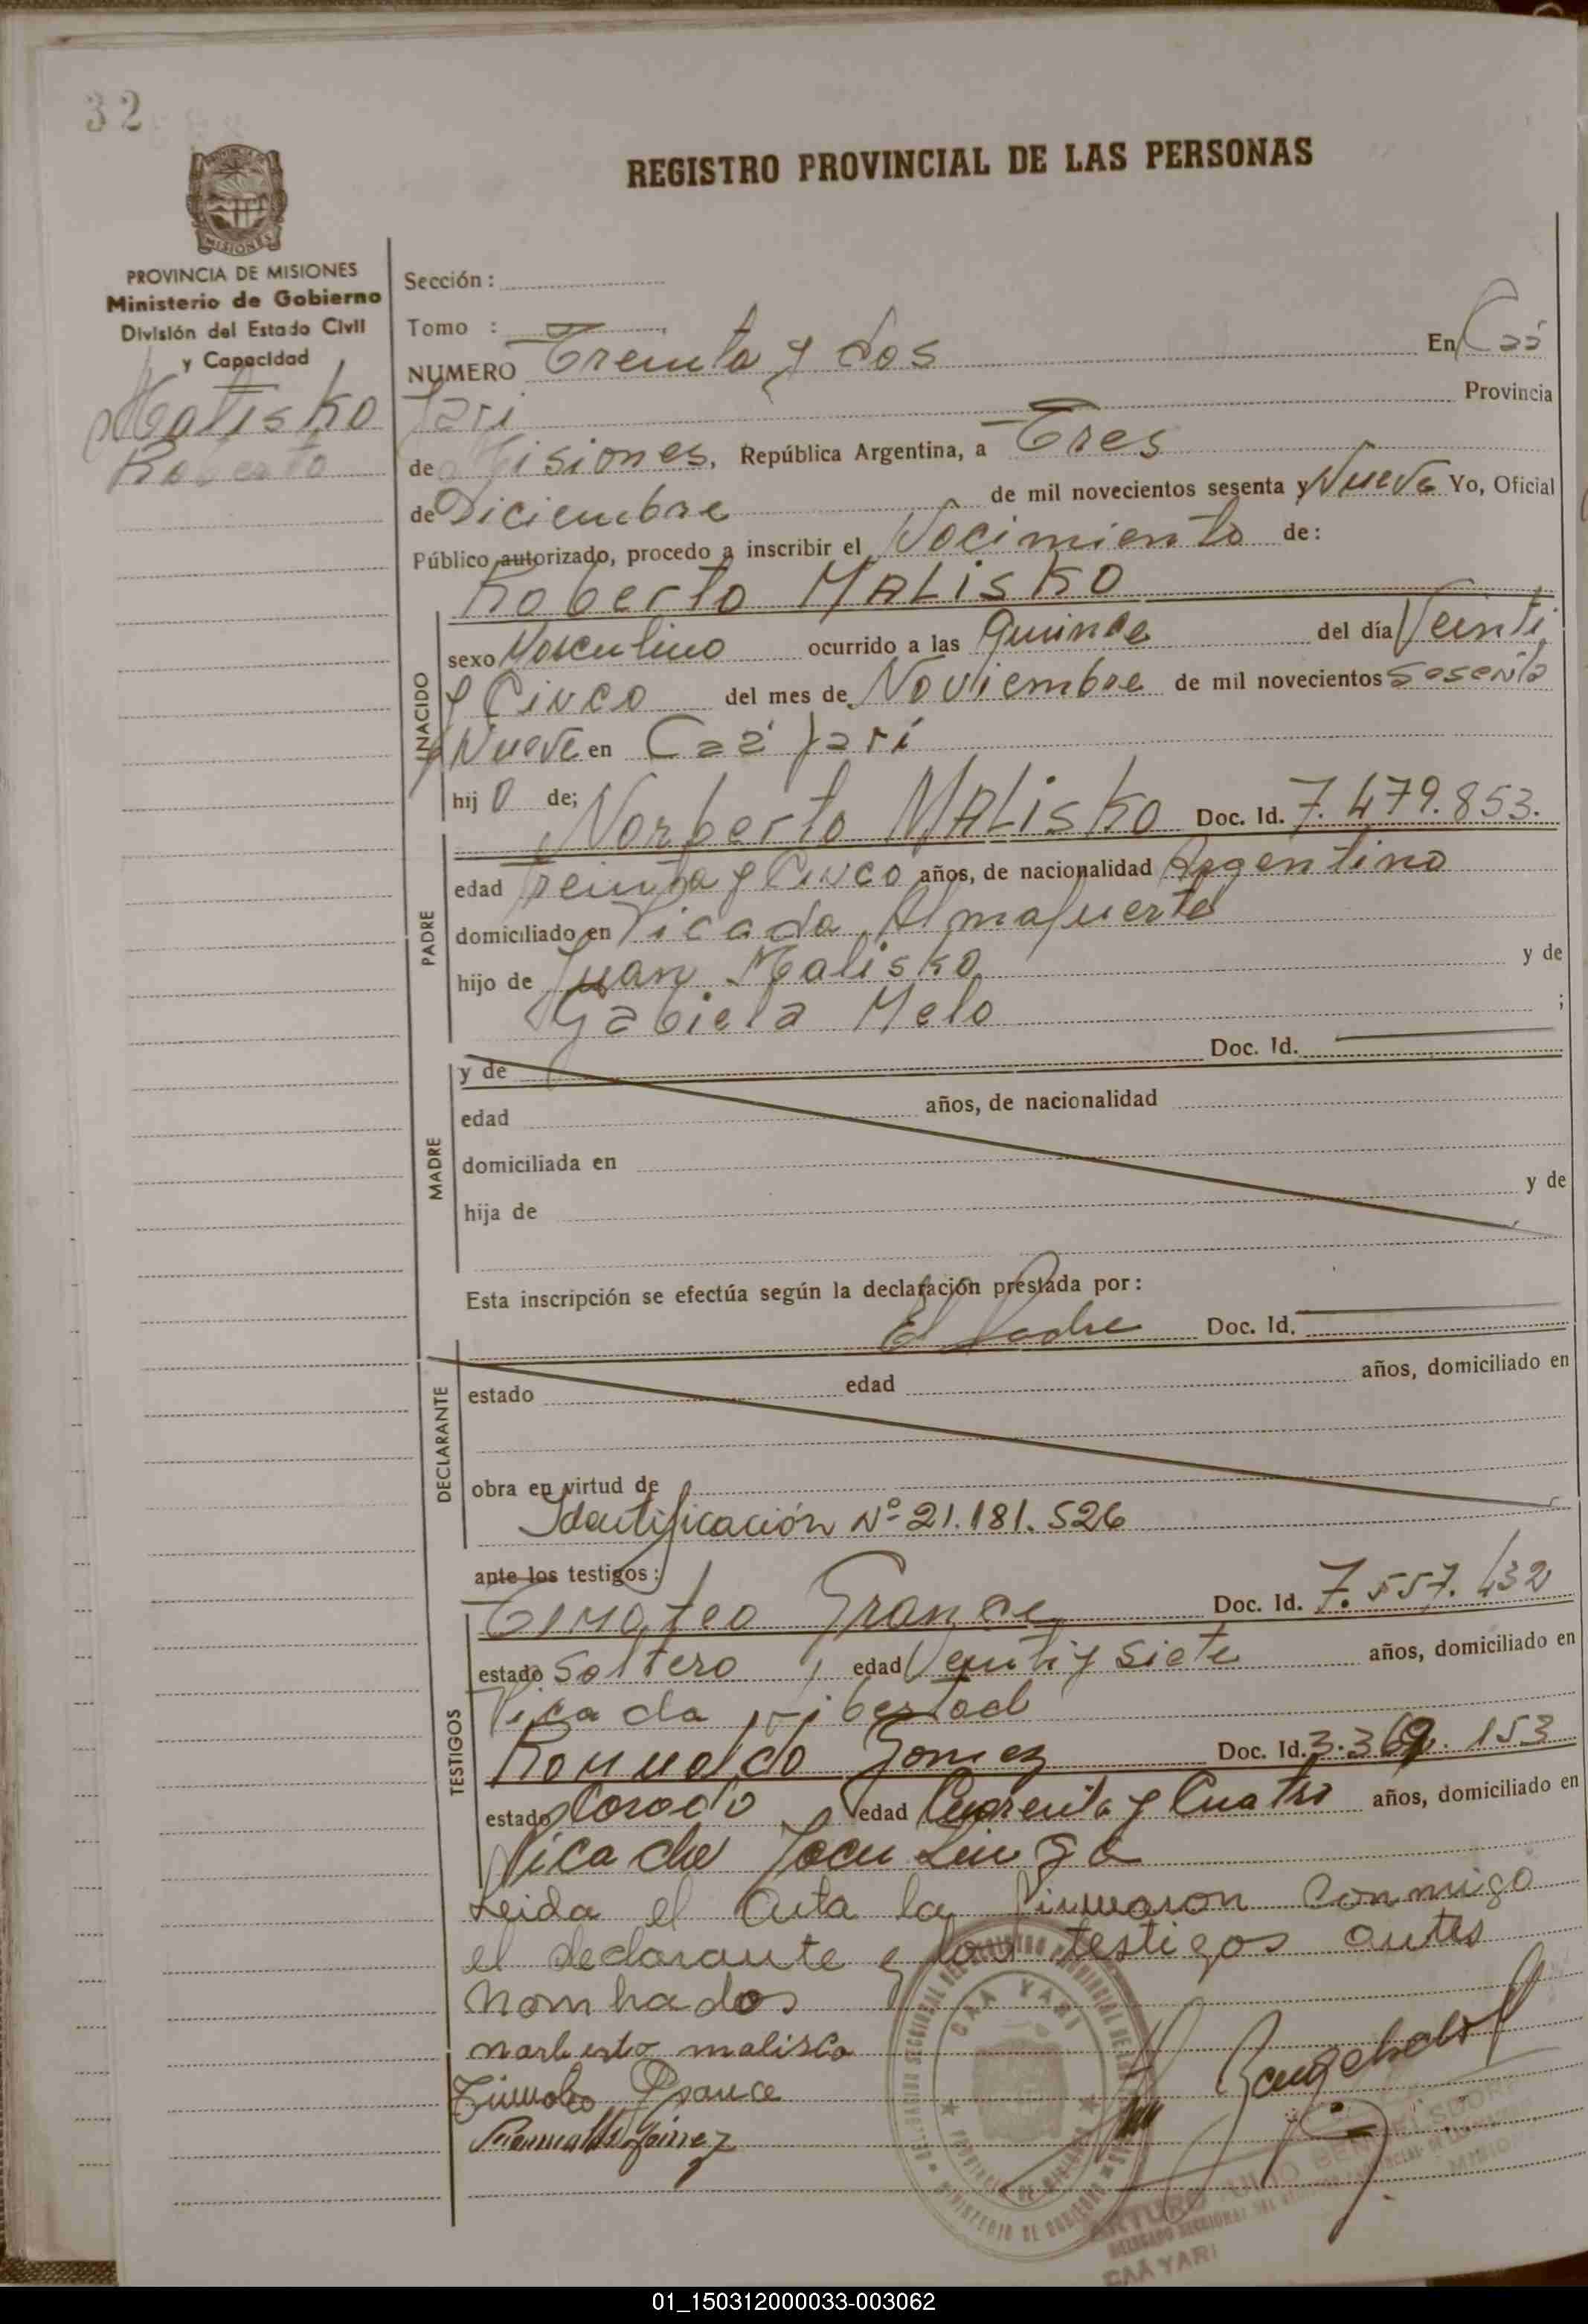 32
REGISTRO PROVINCIAL DE LAS PERSONAS
MISIONES
PROVINCIA DE MISIONES
Ministerio de Gobierno
División del Estado Civil
y Capacidad
Malisko
Roberto
Sección :
Tomo :
NUMERO Treinta y dos En Caá
Yari Provincia
de Misiones, República Argentina, a Tres
de Diciembre de mil novecientos sesenta y Nueve Yo, Oficial
Público autorizado, procedo a inscribir el Nacimiento de:
INACIDO
Roberto MALISKO
sexo Masculino ocurrido a las Quince del día Veinti
y Cinco del mes de Noviembre de mil novecientos Sesenta
y Nueve en Caá Yari
hij o de;
PADRE
Norberto MALISKO Doc. Id. 7.479.853.
edad Treinta y Cinco años, de nacionalidad Argentino
domiciliado en Picada Almafuerte
hijo de Juan Malisko y de
Gabiela Melo ;
MADRE
y de Doc. Id.
edad años, de nacionalidad
domiciliada en
hija de y de
Esta inscripción se efectúa según la declaración prestada por:
El Padre Doc. Id.
DECLARANTE
estado edad años, domiciliado en
obra en virtud de
Identificación Nº 21.181.526
ante los testigos:
TESTIGOS
Timoteo Grance Doc. Id. 7.557.432
estado Soltero edad Veinti y Siete años, domiciliado en
Picada Libertad
Romualdo Gomez Doc. Id. 3.369.153
estado Casado edad Cuarenta y Cuatro años, domiciliado en
Picada
Leida el Acta la firmaron conmigo
el declarante y los testigos antes
nombrados
norberto malisko
Timoteo Grance
Romualdo Gómez
CAA YARI
PROVINCIA DE MISIONES
MINISTERIO DE GOBIERNO
ARTURO JULIO BENGELSDORF
DELEGADO SECCIONAL DEL
CAA YARI
01_150312000033-003062